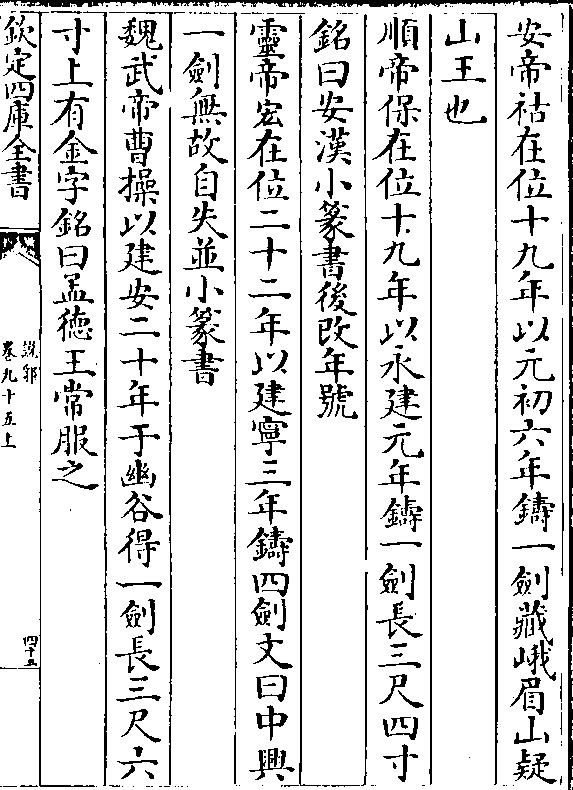 安帝祜在位十九年以元初六年鑄一劍藏峨眉山疑
山王也
順帝保在位十九年以永建元年鑄一劍長三尺四寸
銘曰安漢小篆書後改年號
靈帝宏在位二十二年以建寧三年鑄四劍文曰中興
一劍無故自失並小篆書
魏武帝曹操以建安二十年于幽谷得一劍長三尺六
寸上有金字銘曰孟徳王常服之
欽定四庫全書
說郛
卷九十五上
四十五